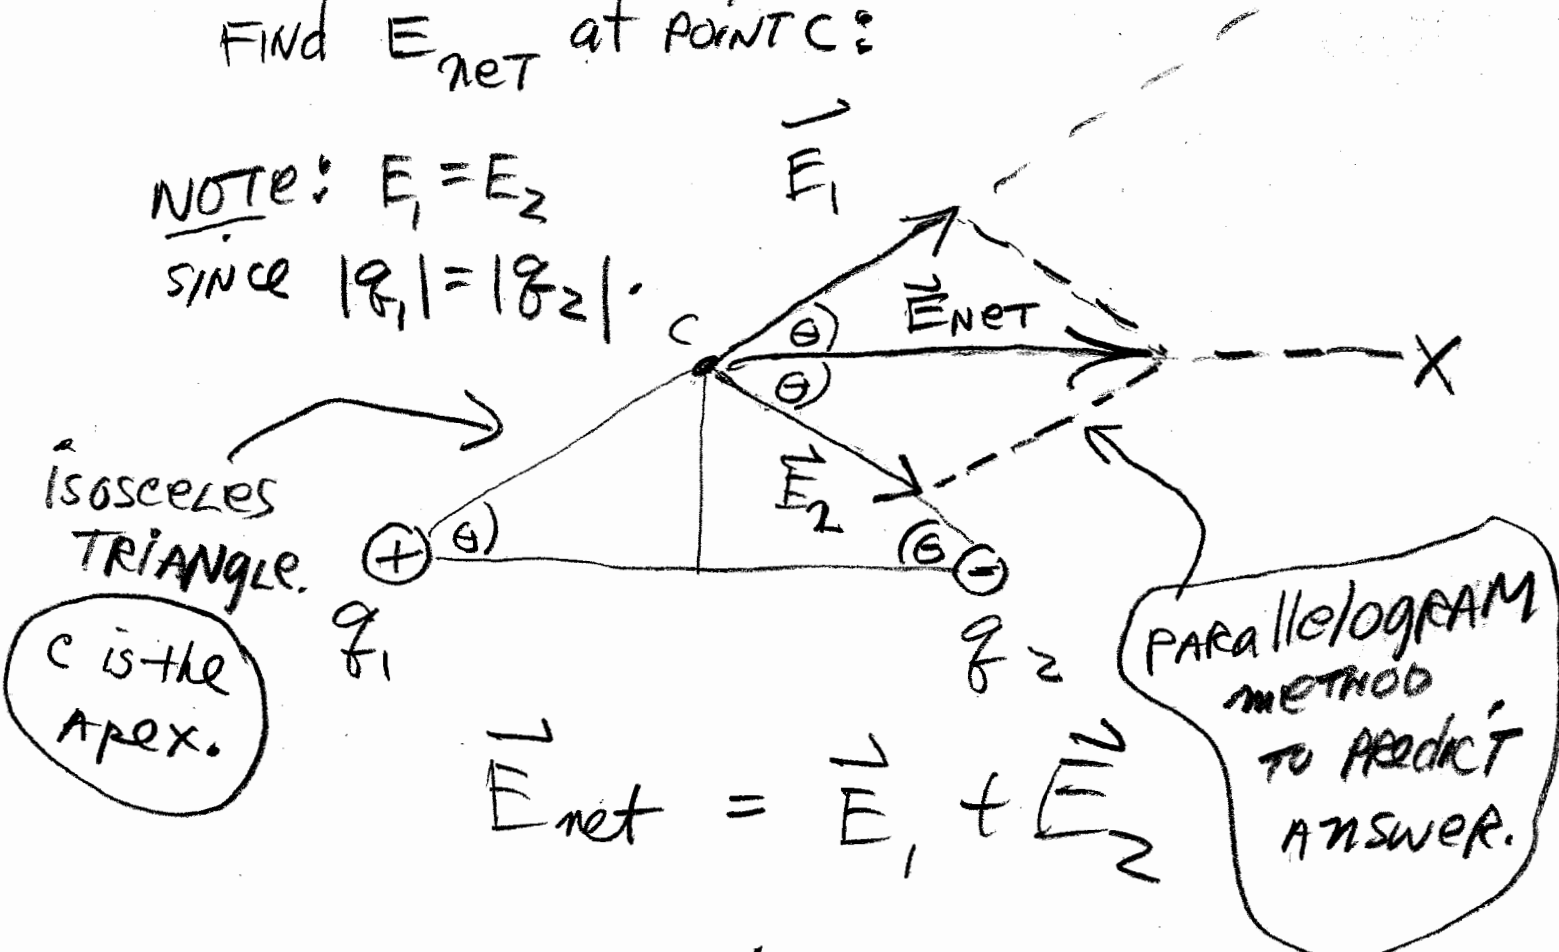 FIND E_net at POINT C:
NOTE: E_1 = E_2
SINCE |q_1| = |q_2|.
E_1
C
θ
E_NET
θ
X
isosceles
TRiANgLE.
E_2
θ
θ
+
-
q_1
q_2
C is the
Apex.
PARallelogRAM
METHOD
TO PREDICT
ANSWER.
E_net = E_1 + E_2